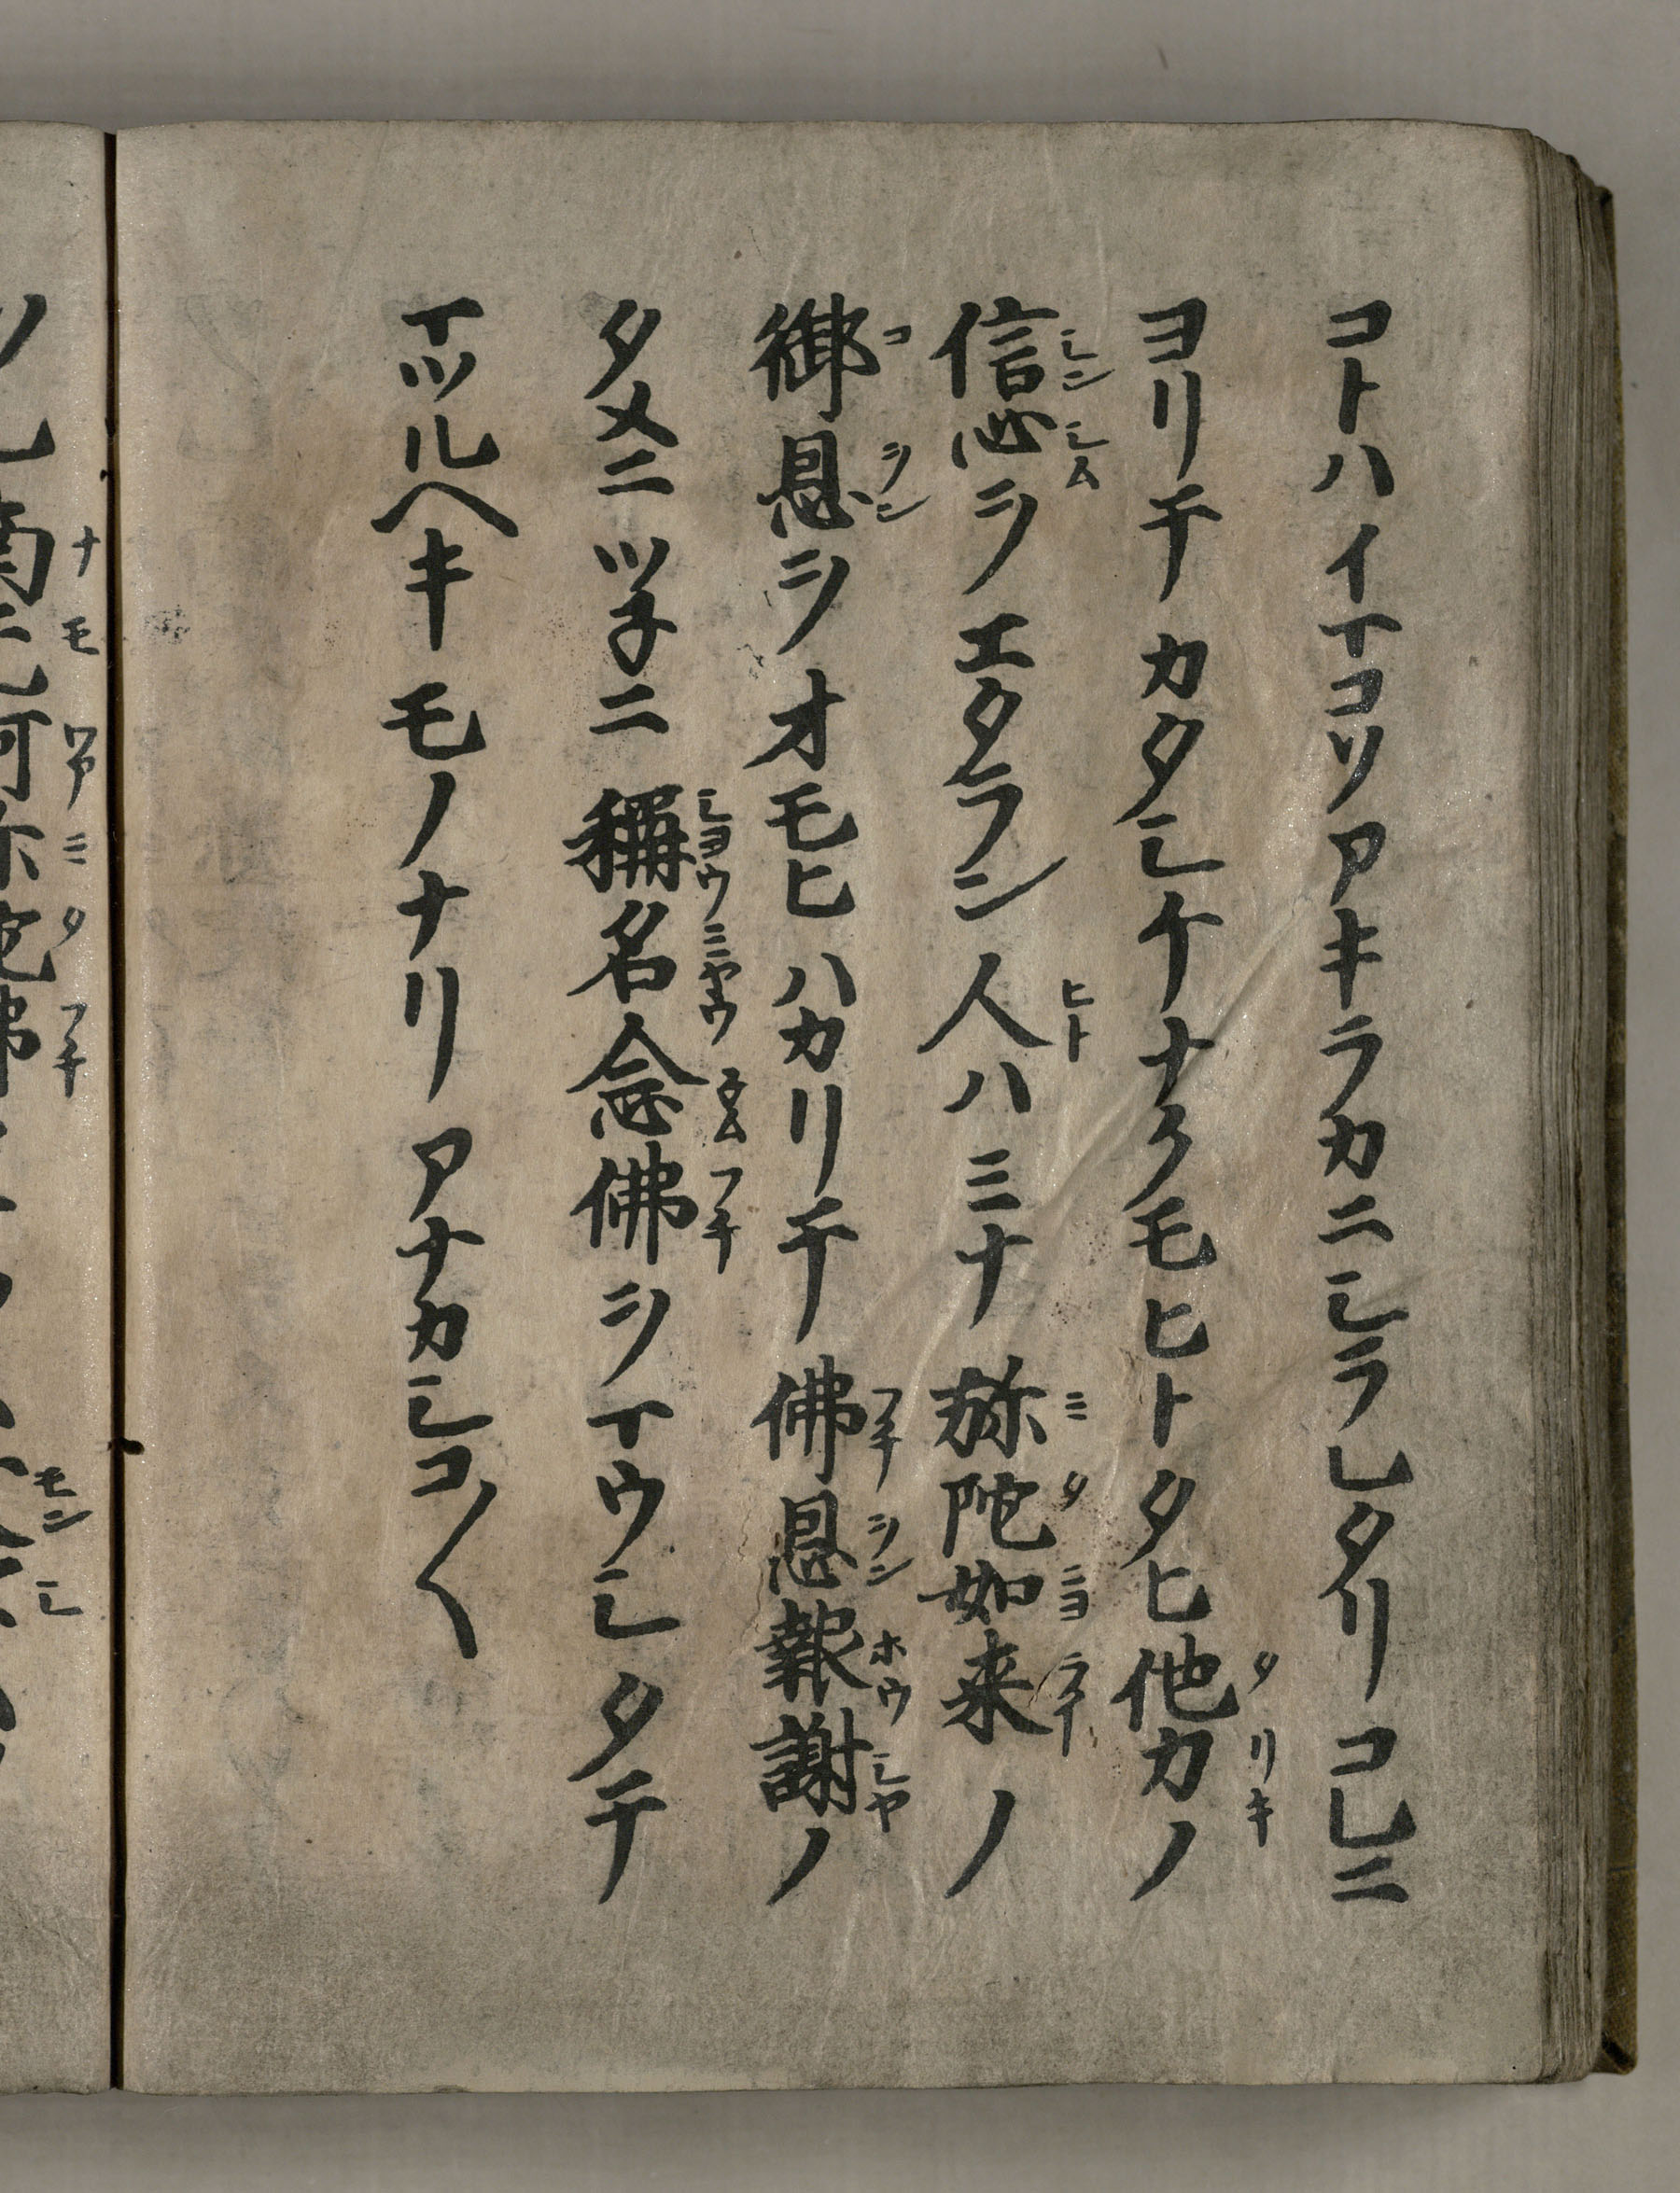 コトハイマコソアキラカニシラレタリコレニ
ヨリテカタシケナクモヒトタヒ他力ノ
信心ヲエタラン人ハミナ弥陀如来ノ
御恩ヲオモヒハカリテ佛恩報謝ノ
タメニツ子ニ稱名念佛ヲマウシタテ
マツルヘキモノナリアナカシコ〱